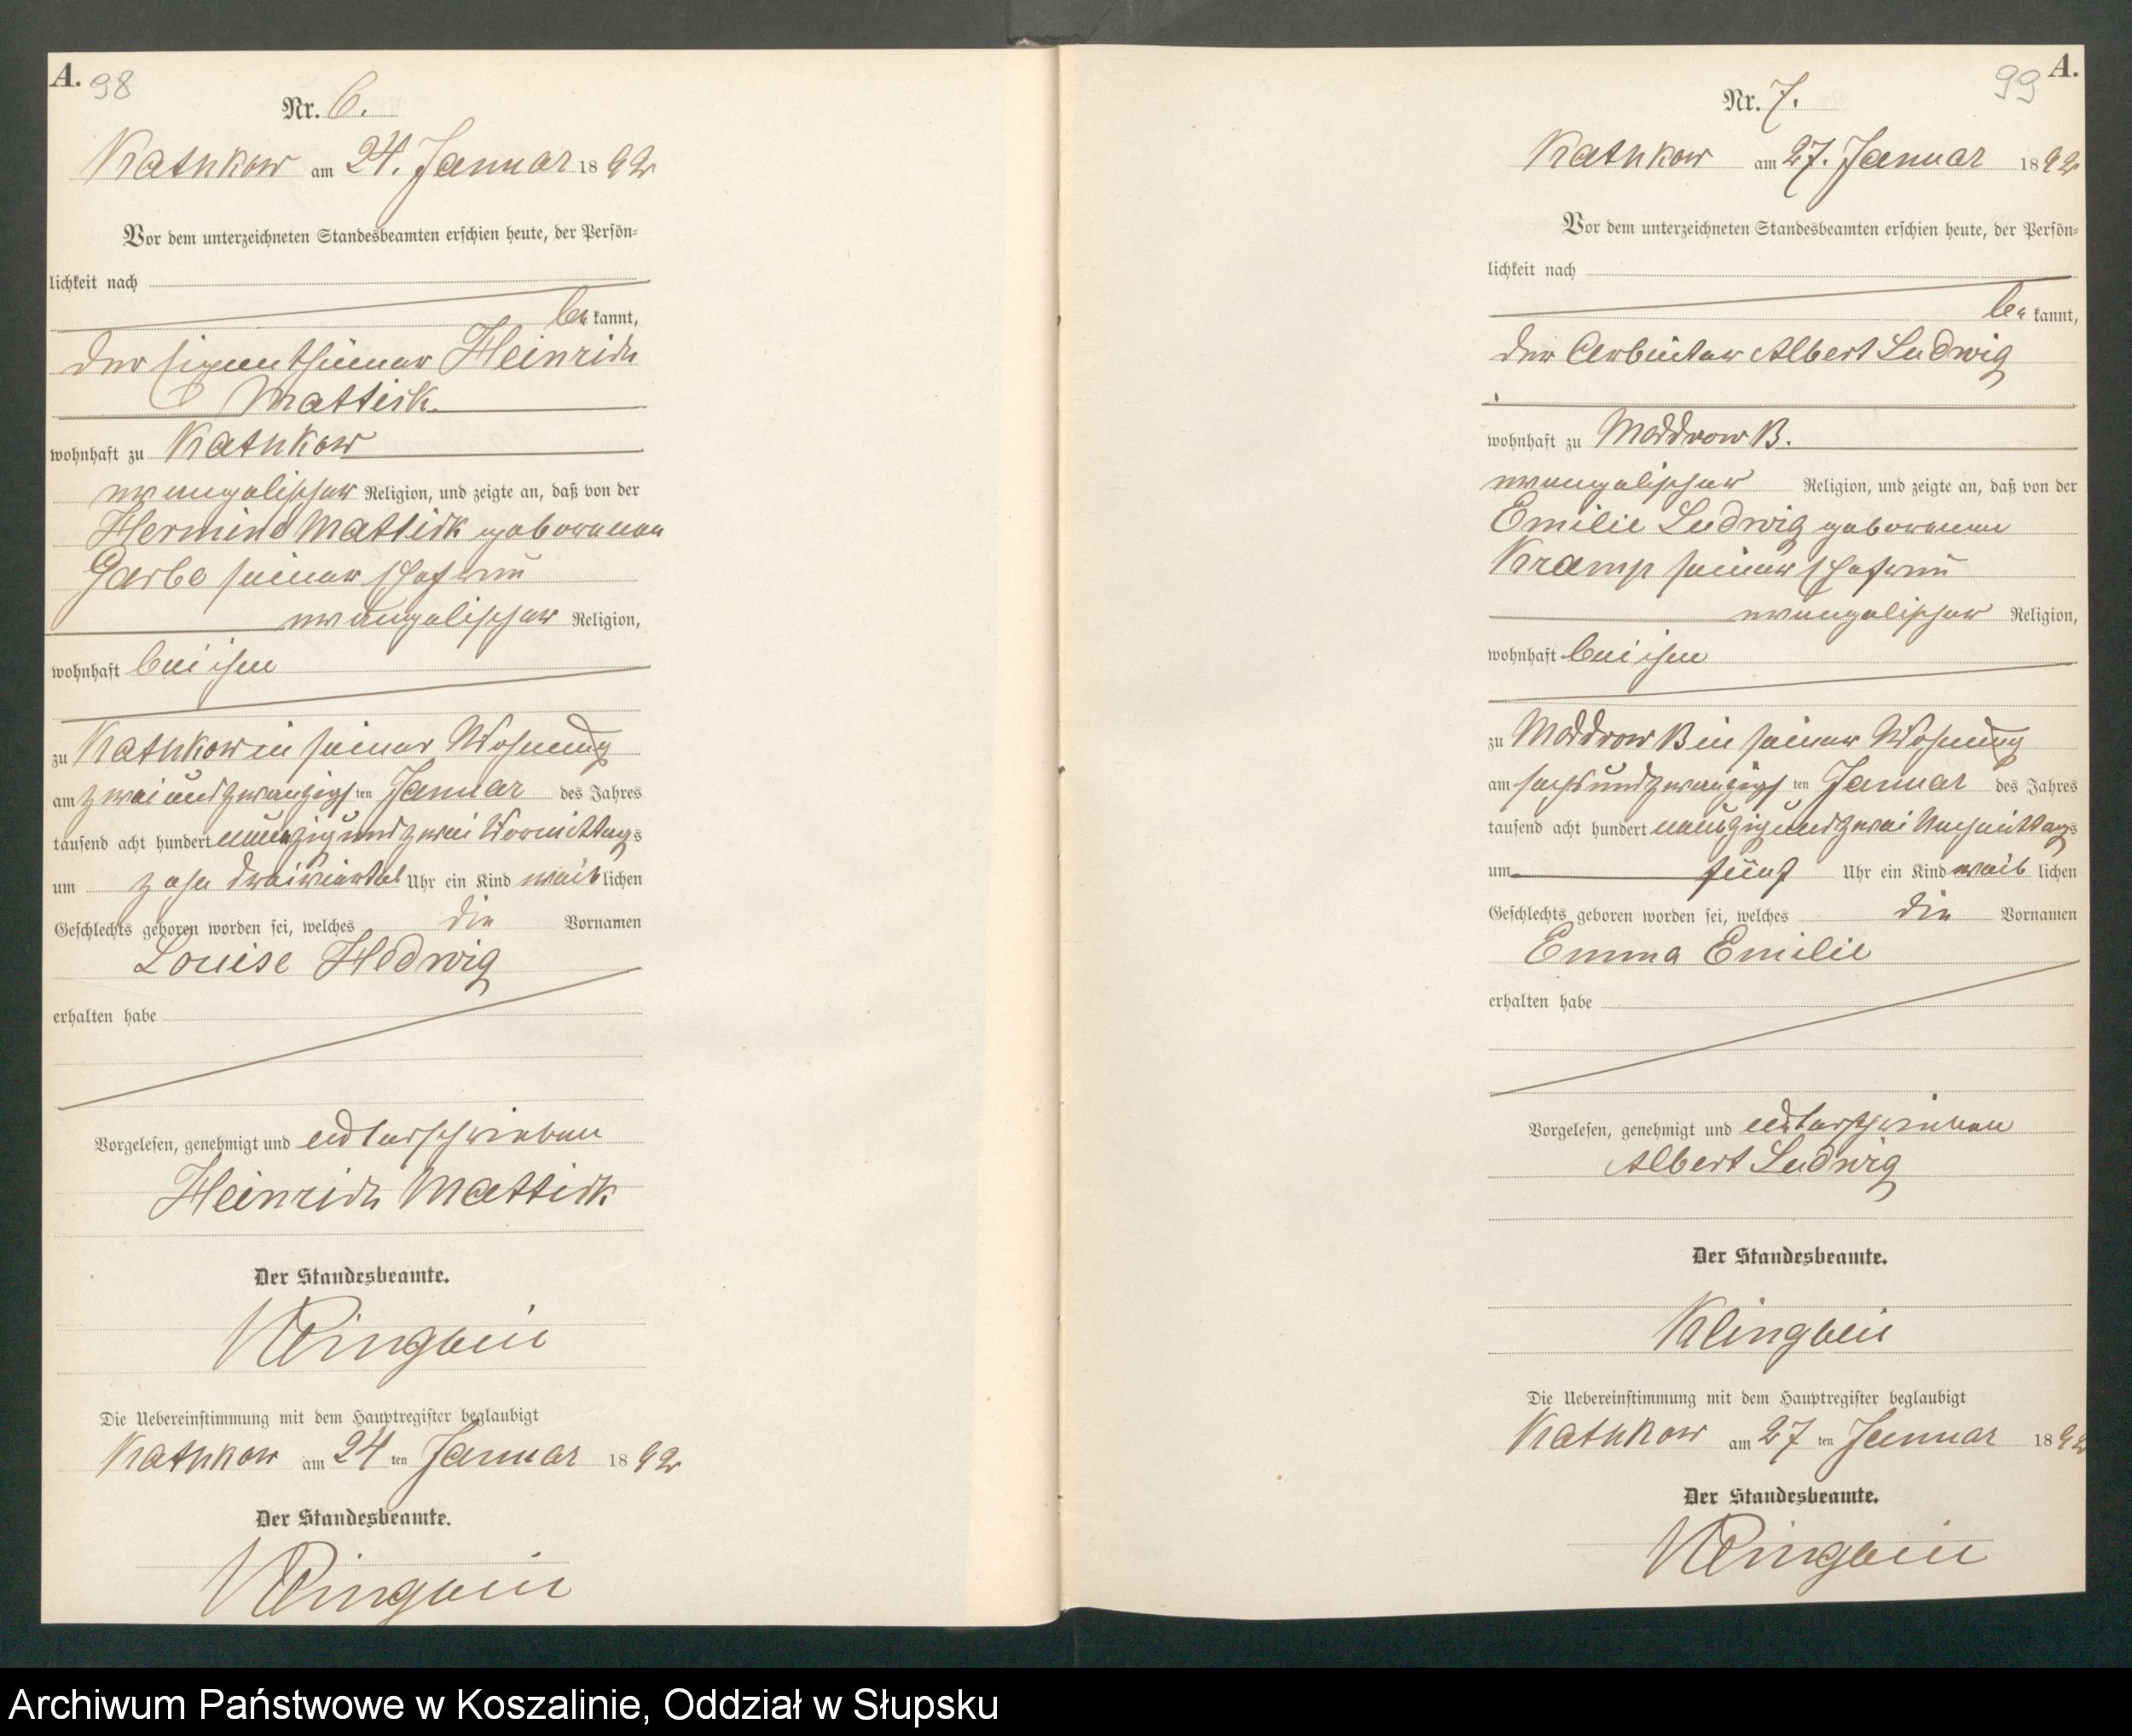 A. 98
Nr. 6.
Kathkow am 24. Januar 1892
Vor dem unterzeichneten Standesbeamten erschien heute, der Persön-
lichkeit nach
be kannt,
der Eigenthümer Heinrich
Mattick
wohnhaft zu Kathkow
evangelischer Religion, und zeigte an, daß von der
Hermine Mattick geborenen
Garbe seiner Ehefrau
evangelischer Religion,
wohnhaft bei ihm
zu Kathkow in seiner Wohnung
am zwei und zwanzigsten Januar des Jahres
tausend acht hundert neunzig und zwei Vormittags
um zehn dreiviertel Uhr ein Kind weib lichen
Geschlechts geboren worden sei, welches die Vornamen
Louise Hedwig
erhalten habe
Vorgelesen, genehmigt und unterschrieben
Heinrich Mattick
Der Standesbeamte.
Klingbeil
Die Uebereinstimmung mit dem Hauptregister beglaubigt
Kathkow am 24 ten Januar 1892
Der Standesbeamte.
Klingbeil
99 A.
Nr. 7.
Kathkow am 27. Januar 1892
Vor dem unterzeichneten Standesbeamten erschien heute, der Persön-
lichkeit nach
be kannt,
der Arbeiter Albert Ludwig
wohnhaft zu Moddrow B.
evangelischer Religion, und zeigte an, daß von der
Emilie Ludwig geborenen
Kramp seiner Ehefrau
evangelischer Religion,
wohnhaft bei ihm
zu Moddrow B in seiner Wohnung
am sechs und zwanzigsten Januar des Jahres
tausend acht hundert neunzig und zwei Nachmittags
um fünf Uhr ein Kind weib lichen
Geschlechts geboren worden sei, welches die Vornamen
Emma Emilie
erhalten habe
Vorgelesen, genehmigt und unterschrieben
Albert Ludwig
Der Standesbeamte.
Klingbeil
Die Uebereinstimmung mit dem Hauptregister beglaubigt
Kathkow am 27 ten Januar 1892
Der Standesbeamte.
Klingbeil
Archiwum Państwowe w Koszalinie, Oddział w Słupsku